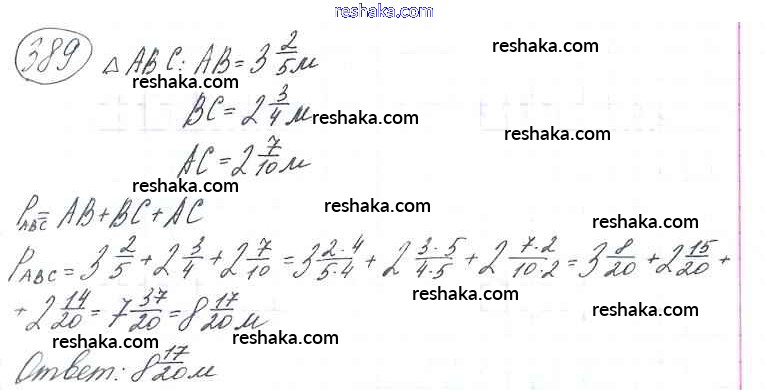 reshaka.com
389 △ ABC: AB = 3 2/5 м
reshaka.com
reshaka.com
BC = 2 3/4 м
reshaka.com
reshaka.com
AC = 2 7/10 м
reshaka.com
P_ABC = AB + BC + AC
reshaka.com
reshaka.com
P_ABC = 3 2/5 + 2 3/4 + 2 7/10 = 3 2·4/5·4 + 2 3·5/4·5 + 2 7·2/10·2 = 3 8/20 + 2 15/20 +
reshaka.com
+ 2 14/20 = 7 37/20 = 8 17/20 м
reshaka.com
reshaka.com
Ответ: 8 17/20 м
reshaka.com